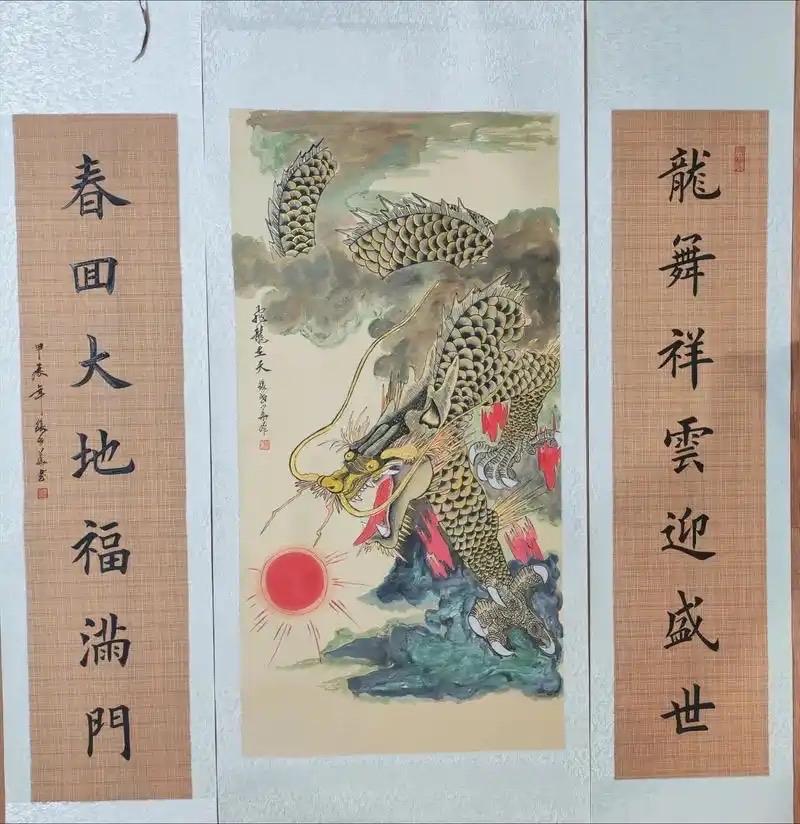 龍舞祥雲迎盛世
春回大地福滿門
甲辰年
飛龍在天